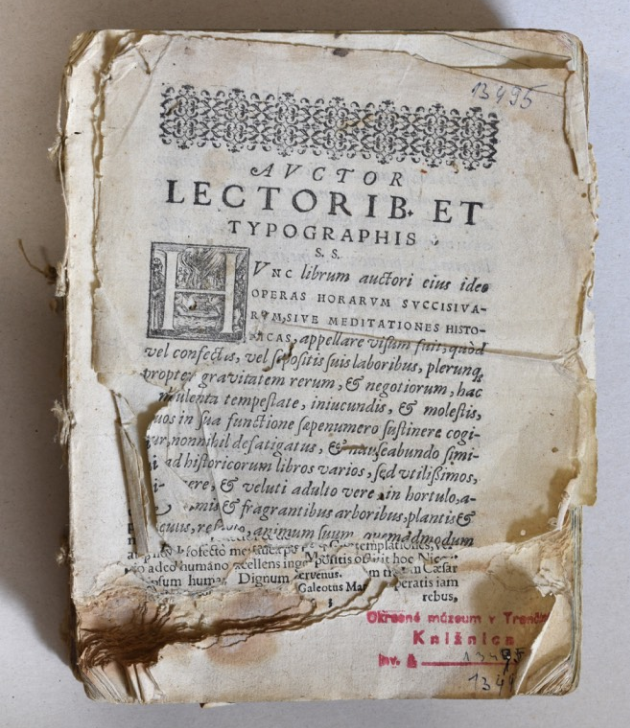 13495
AVCTOR
LECTORIB. ET
TYPOGRAPHIS
S. S.
HVNC librum auctori eius ideo
OPERAS HORARVM SVCCISIVA-
RVM, SIVE MEDITATIONES HISTO-
RICAS, appellare visum fuit, quòd
vel confectus, vel sepositis suis laboribus, plerunq;
propter gravitatem rerum, & negotiorum, hac
tempestate, iniucundis, & molestis,
in sua functione sæpenumero sustinere cogi-
nonnihil defatigatus, & nauseabundo simi-
ad historicorum libros varios, sed utilissimos,
& veluti adulto vere, in hortulo, a-
& fragrantibus arboribus, plantis &
animum suum, quemadmodum
humano
Dignum
Galeotus
peratis iam
rebus,
Okresné múzeum v Trenčíne
Knižnica
Inv. č.